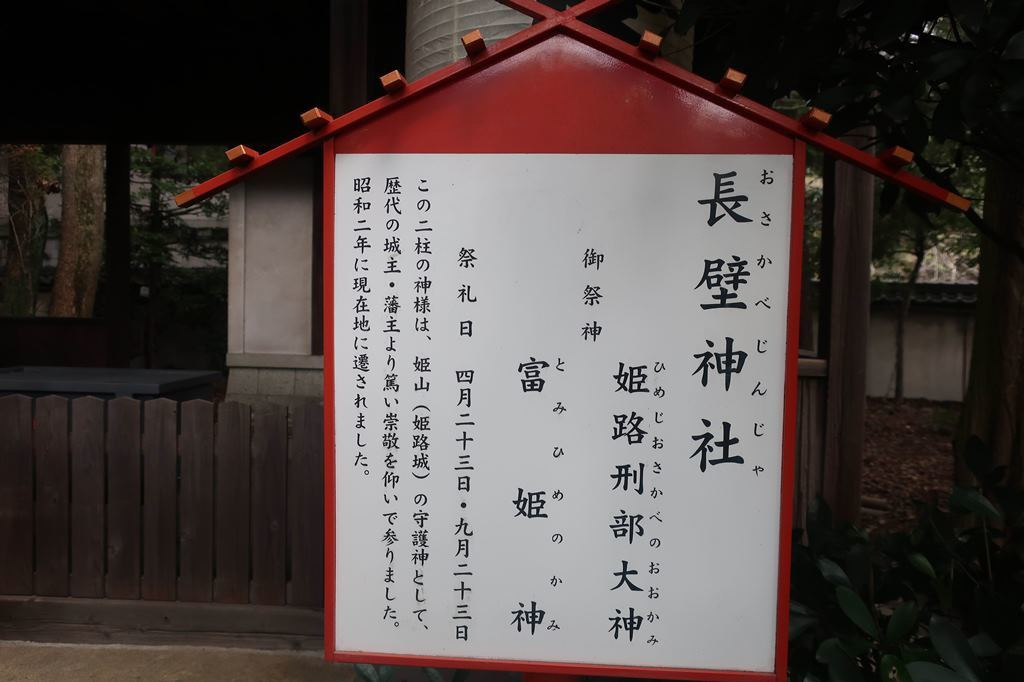 長壁神社
おさかべじんじゃ
御祭神
姫路刑部大神
ひめじおさかべのおおかみ
富姫神
とみひめのかみ
祭礼日 四月二十三日・九月二十三日
この二柱の神様は、姫山(姫路城)の守護神として、
歴代の城主・藩主より篤い崇敬を仰いで参りました。
昭和二年に現在地に遷されました。